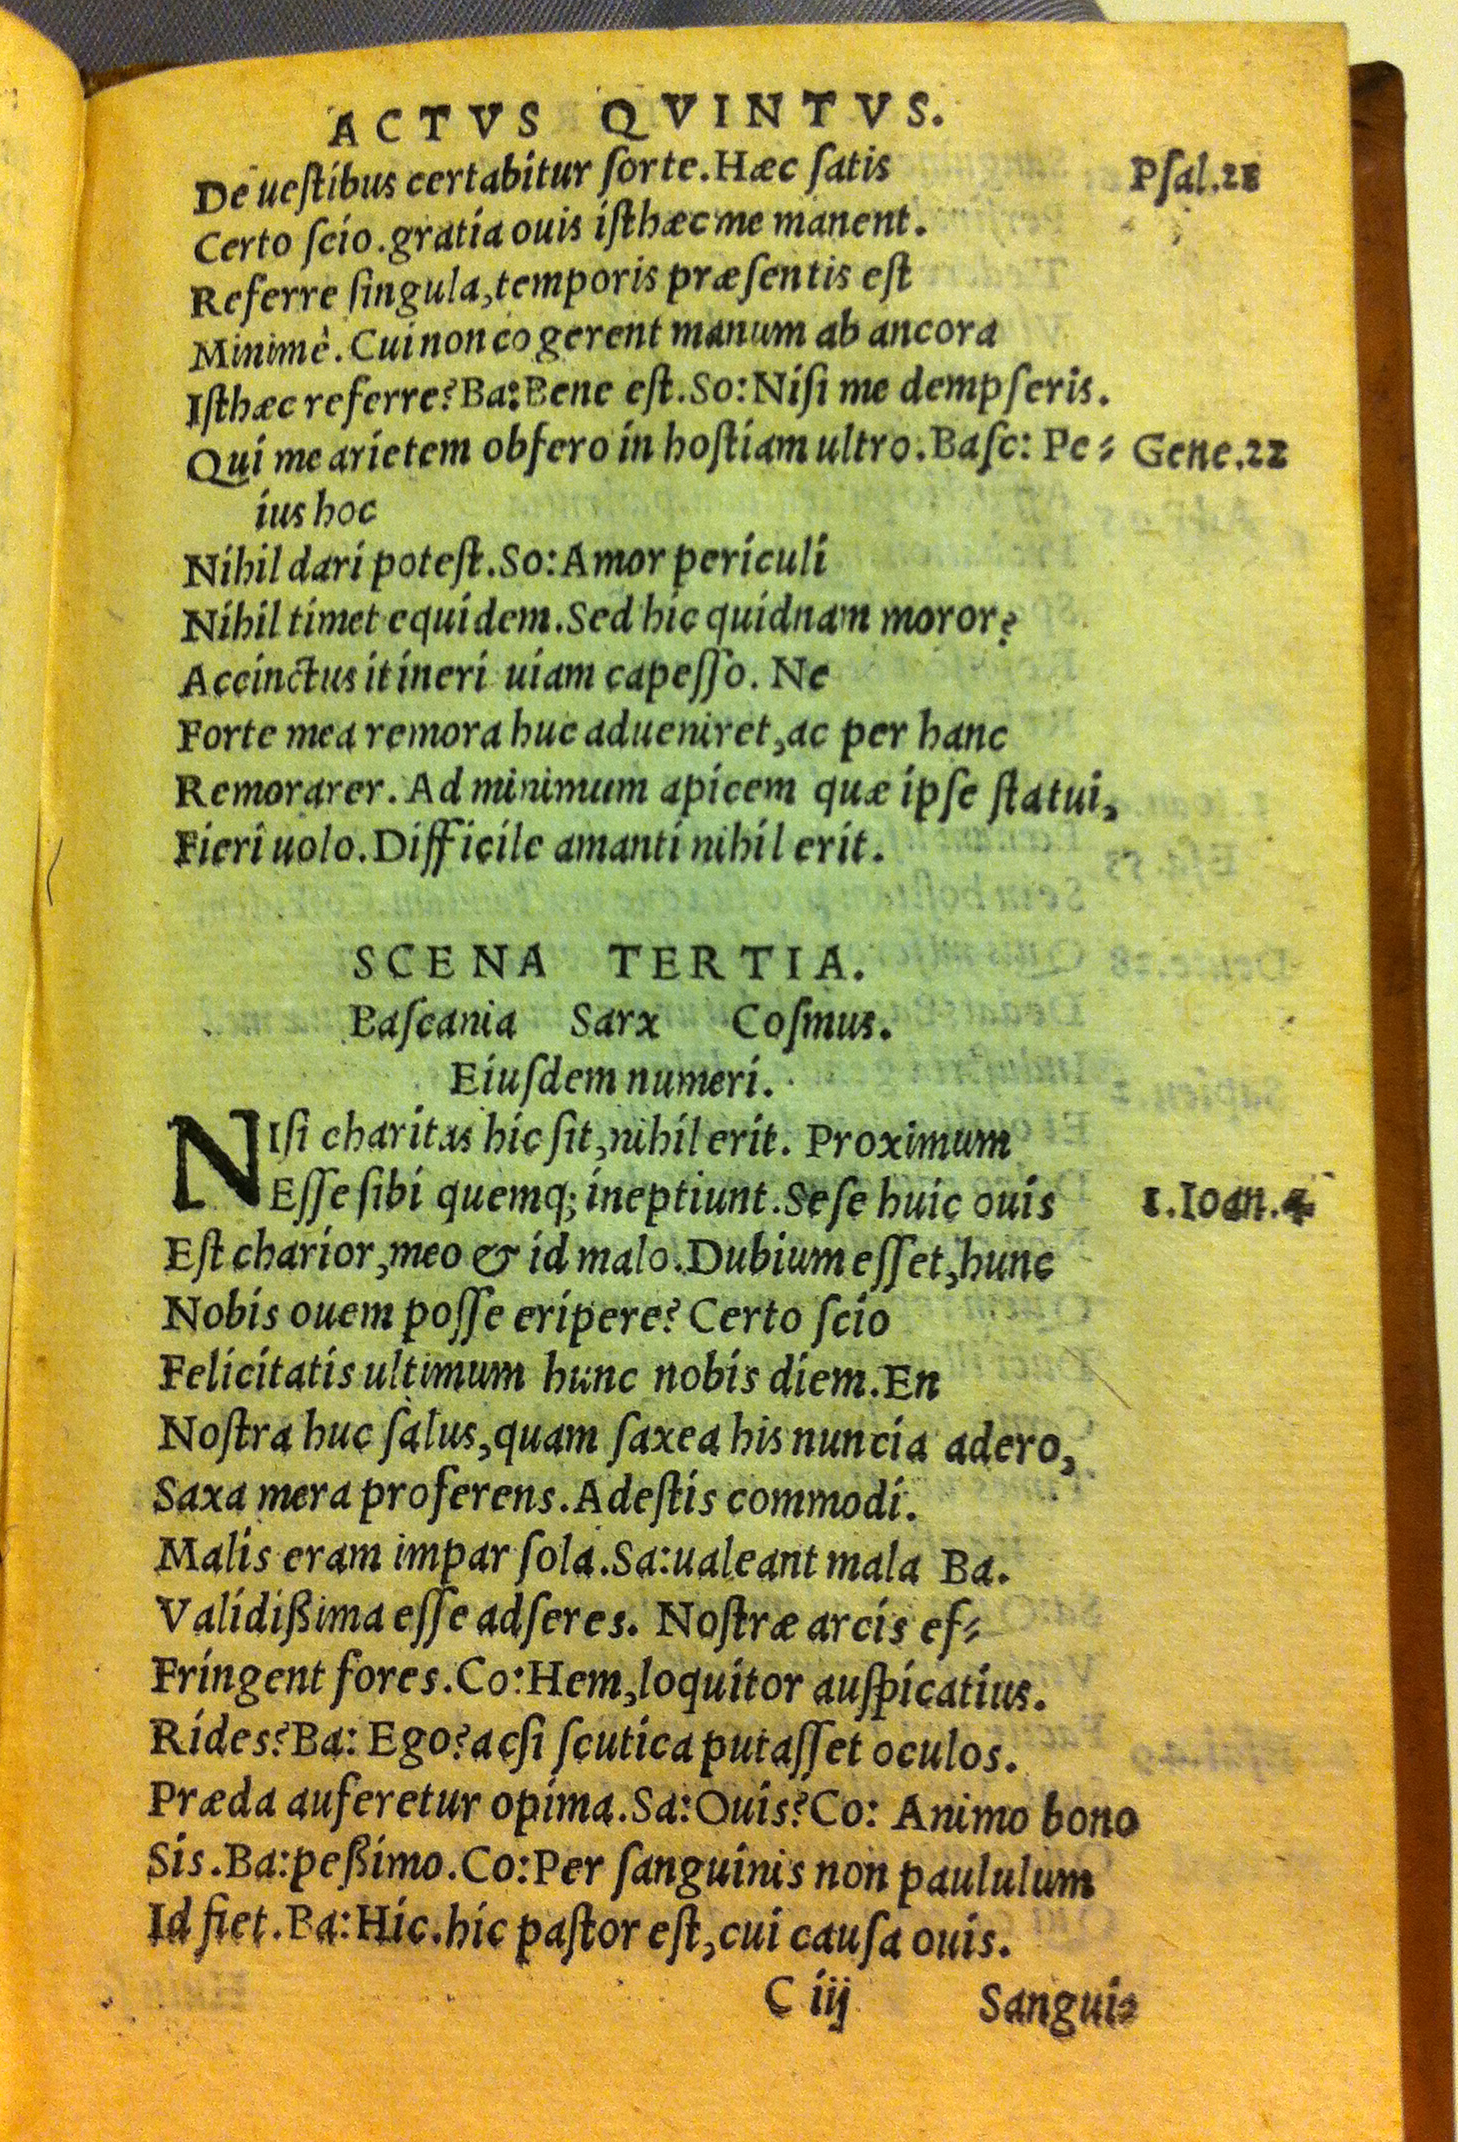 ACTVS QVINTVS.
De ueſtibus certabitur ſorte. Hæc ſatis Pſal.21
Certo ſcio. gratia ouis iſthæc me manent.
Referre ſingula, temporis præſentis eſt
Minimè. Cui non co gerent manum ab ancora
Iſthæc referre? Ba: Bene eſt. So: Niſi me dempſeris.
Qui me arietem obfero in hoſtiam ultro. Baſc: Pe⸗ Gene.22
ius hoc
Nihil dari poteſt. So: Amor periculi
Nihil timet equidem. Sed hic quidnam moror?
Accinctus itineri uiam capeſſo. Ne
Forte mea remora huc adueniret, ac per hanc
Remorarer. Ad minimum apicem quæ ipſe ſtatui,
Fieri uolo. Difficile amanti nihil erit.
SCENA TERTIA.
Baſcania Sarx Coſmus.
Eiuſdem numeri.
NIſi charitas hic ſit, nihil erit. Proximum
Eſſe ſibi quemq; ineptiunt. Seſe huic ouis 1.Ioan.4
Eſt charior, meo & id malo. Dubium eſſet, hunc
Nobis ouem poſſe eripere? Certo ſcio
Felicitatis ultimum hunc nobis diem. En
Noſtra huc ſalus, quam ſaxea his nuncia adero,
Saxa mera proferens. Adeſtis commodi.
Malis eram impar ſola. Sa: ualeant mala Ba.
Validißima eſſe adſeres. Noſtræ arcis ef⸗
Fringent fores. Co: Hem, loquitor auſpicatius.
Rides? Ba: Ego? acſi ſcutica putaſſet oculos.
Præda auferetur opima. Sa: Ouis? Co: Animo bono
Sis. Ba: peßimo. Co: Per ſanguinis non paululum
Id fiet. Ba: Hic. hic paſtor eſt, cui cauſa ouis.
C iij Sangui⸗